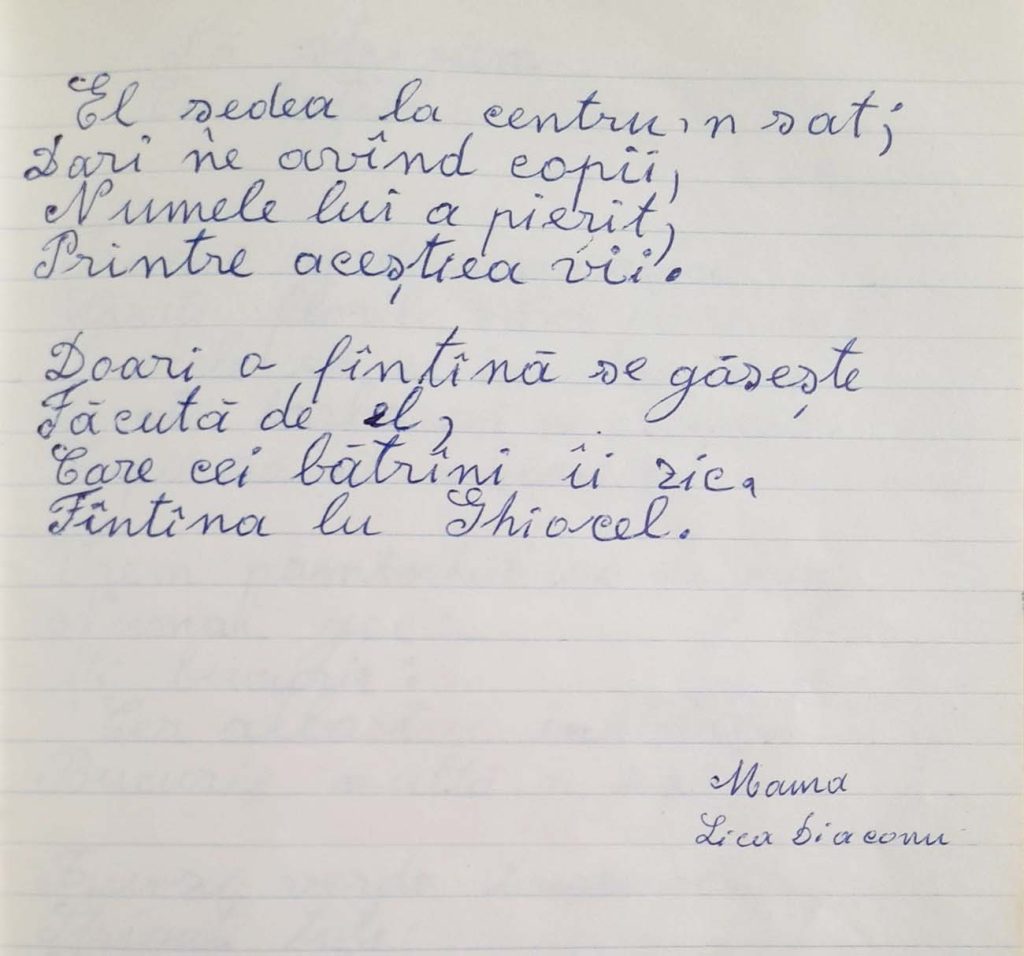 El sedea la centru,n sat;
Dari ne avînd copii,
Numele lui a pierit,
Printre aceștiea vii.
Doari o fîntînă se găsește
Făcută de el,
Care cei bătrîni îi zic.
Fîntîna lu Ghiocel.
Mama
Lica Diaconu